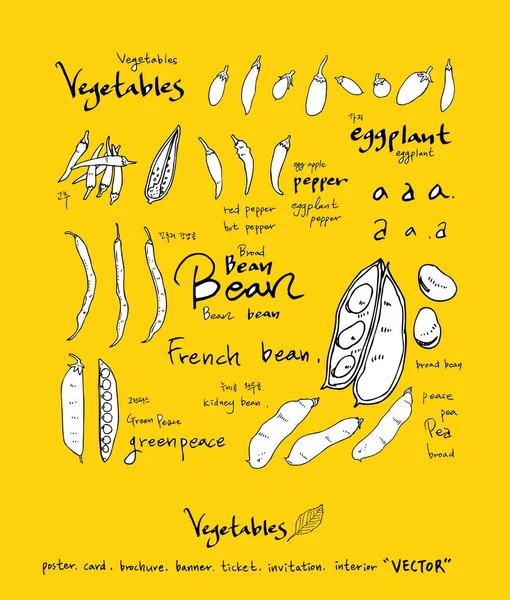 Vegetables
Vegetables
가지
eggplant
eggplant
고추
egg apple
pepper
red pepper
hot pepper
eggplant
pepper
a a a.
a a.a
Broad
Bean
Bean
Bean bean
French bean.
broad bean
kidney bean.
Green Peace
greenpeace
pease
pea
Pea
broad
Vegetables
poster. card. brochure. banner. ticket. invitation. interior "VECTOR"